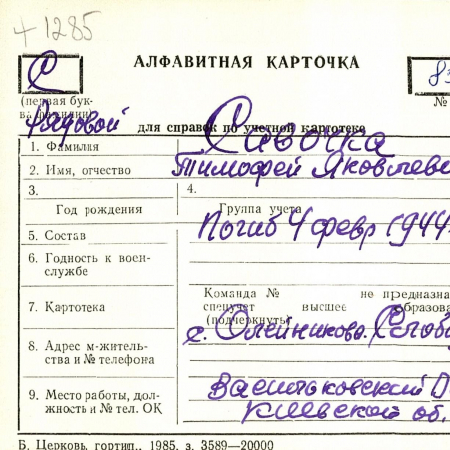 + 1285
АЛФАВИТНАЯ КАРТОЧКА
С
(первая бук-
ва фамилии)
№
Рядовой
для справок по учетной картотеке
1. Фамилия Савочка
2. Имя, отчество Тимофей Яковлеви
3. 4.
Год рождения Группа учета
5. Состав Погиб 4 февр 1944
6. Годность к воен-
службе
7. Картотека
Команда № не предназна
спецучет высшее образова
(подчеркнуть)
8. Адрес м-жительст-
ва и № телефона
с. Олейникова Слобо
9. Место работы, дол-
жность и № тел. ОК
Васильковский
Киевской об.
Б. Церковь, гортип., 1985, з. 3589—20000